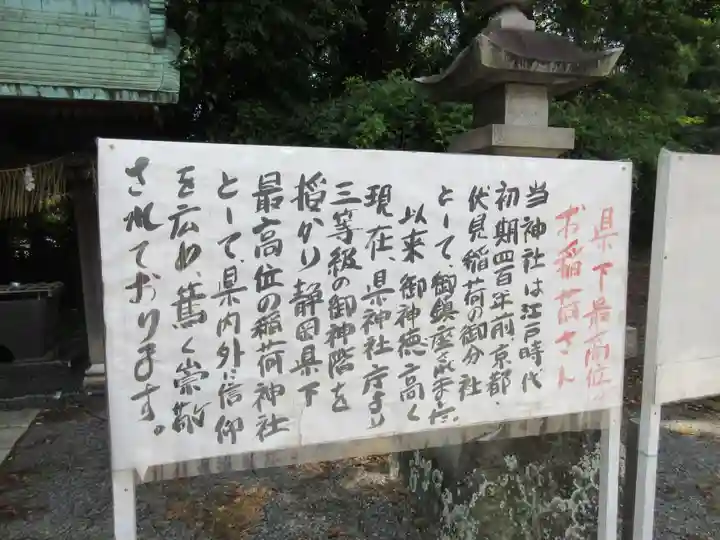 県下最高位の
お稲荷さん
当神社は江戸時代
初期四百年前、京都・
伏見稲荷の御分社
として御鎮座されました。
以来御神徳高く
現在、県神社庁より
三等級の御神階を
授かり静岡県下
最高位の稲荷神社
として、県内外に信仰
を広め、篤く崇敬
されております。